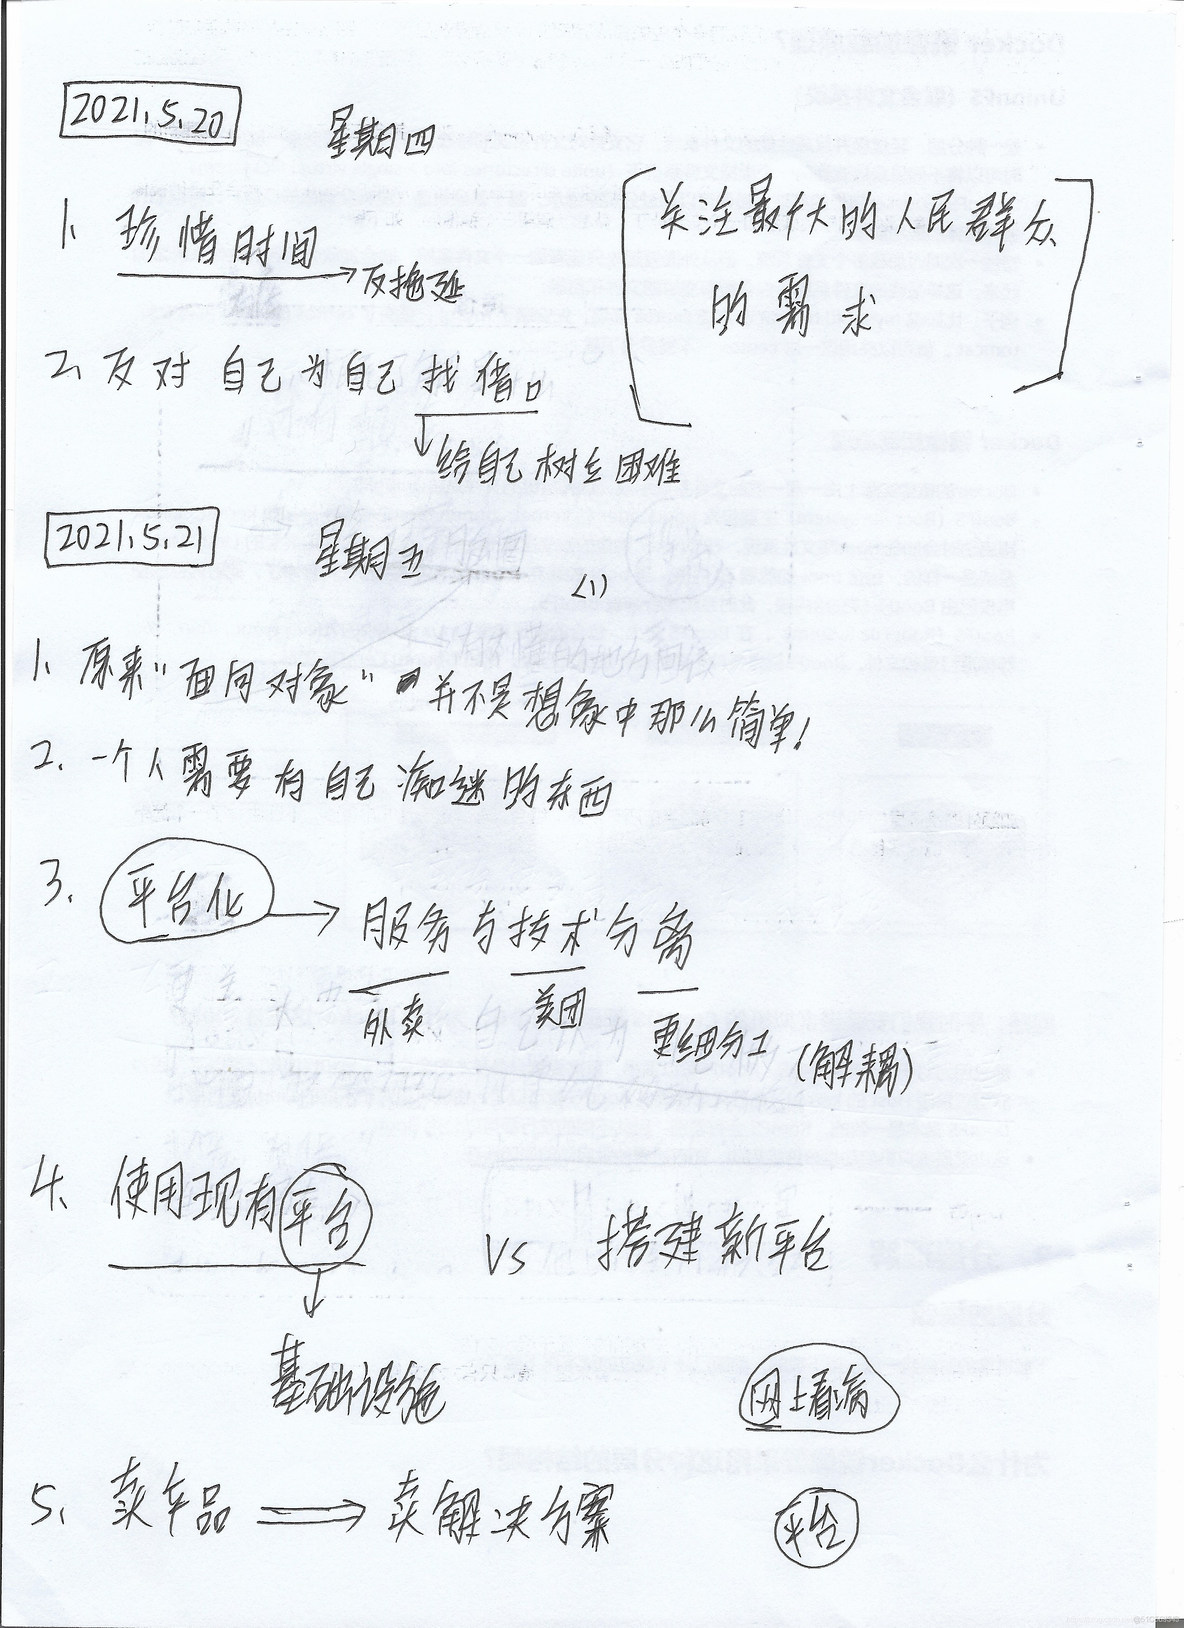 2021.5.20 星期四
1. 珍惜时间
→反拖延
关注最广大的人民群众
的需求
2. 反对自己为自己找借口
↓给自己树立困难
2021.5.21 星期五
(1)
1. 原来“面向对象”并不是想象中那么简单!
2. 一个人需要有自己痴迷的东西
3. 平台化→服务与技术分离
外卖 美团 更细分工 (解耦)
4. 使用现有平台 VS 搭建新平台
↓
基础设施
网上看病
5. 卖产品 ⇒ 卖解决方案
平台